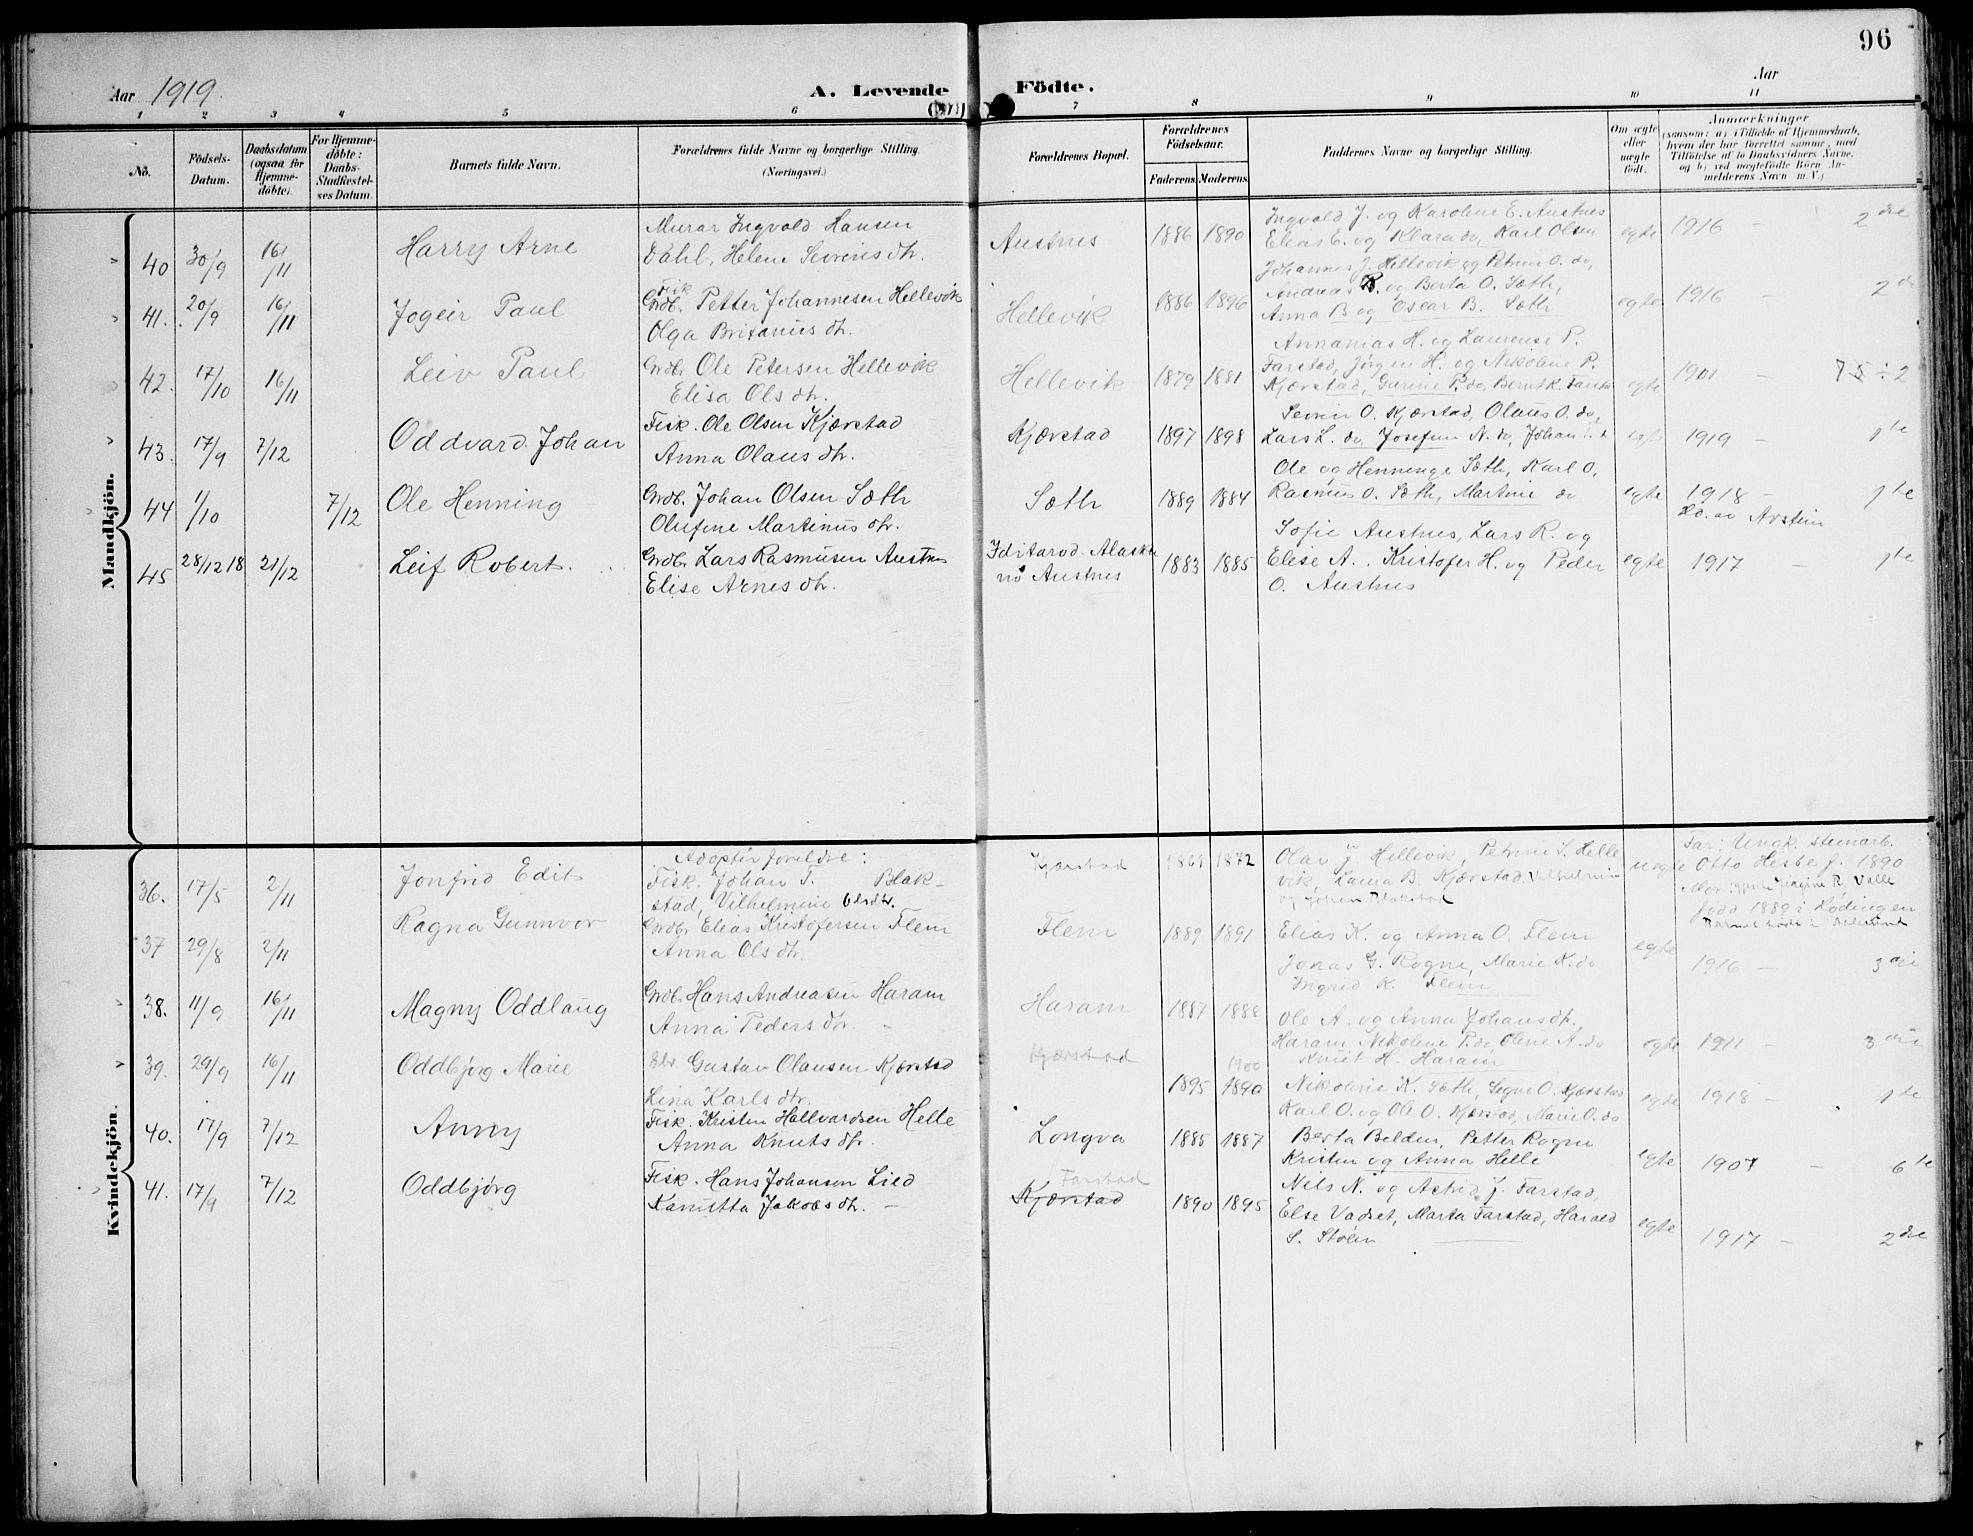 96
Aar 1919.
A. Levende
Födte.
Aar
1 2 3 4 5 6 7 8 9 10 11
No.
Födsels-
Datum.
Daabsdatum
(ogsaa for
Hjemme-
döbte).
For Hjemme-
döbte:
Daabs-
Stadfæstel-
ses Datum.
Barnets fulde Navn.
Forældrenes fulde Navne og borgerlige Stilling.
(Næringsvei.)
Forældrenes Bopæl.
Forældrenes
Födselsaar.
Faderens. Moderens.
Faddernes Navne og borgerlige Stilling.
Om ægte
eller
uægte
födt.
Anmærkninger
(saasom: a) i Tilfælde af Hjemmedaab,
hvem der har forrettet samme, med
Tilföielse af to Daabsvidners Navne,
og b) ved uægtefödte Börn An-
melderens Navn m. V.)
Mandkjön.
40 30/9 16/11 Harry Arne
Murar Ingvald Hansen
Dahl, Helene Severins dtr.
Austnes 1886 1890
Ingvald J. og Karoline E. Austnes
Elias E. og Klara do, Karl Olsen
egte 1916 - 2dre
41. 20/9 16/11 Jogeir Paul
Fisk
Grdb. Petter Johannesen Hellevik
Olga Britanius dtr.
Hellevik 1886 1896
Johannes J. Hellevik og Petrine O. do,
Andreas B. og Berta O. Sæth,
Anna B og Oscar B. Sæth
egte 1916 - 2dr
42. 17/10 16/11 Leiv Paul
Grdb. Ole Petersen Hellevik
Elisa Ols dtr.
Hellevik 1879 1881
Annanias H. og Laurense P.
Farstad, Jørgen H. og Nikoline P.
Kjærstad, Gurine P. do, Bernt K. Farstad
egte 1901 - 75 ÷ 2
43. 17/9 7/12 Oddvard Johan
Fisk. Ole Olsen Kjærstad
Anna Olaus dtr.
Kjærstad 1897 1898
Severin O. Kjærstad, Olaus O. do,
Lars L. do, Josefine N. do, Johan T. d
egte 1919 - 1te
44 1/10 7/12 Ole Henning
Grdb. Johan Olsen Sæth
Olufine Martinus dtr.
Sæth 1889 1884
Ole og Henninge Sæth, Karl O.
Rasmus O. Sæth, Martine do
egte 1918 - 1te
Hd. av Avstein
45 28/12 18 21/12 Leif Robert.
Grdb. Lars Rasmusen Austnes
Elise Arnes dtr.
Iditarod. Alaska
nú Austnes
1883 1885
Sofie Austnes, Lars R. og
Elise A., Kristofer H. og Peder
O. Austnes
egte 1917 - 1te
Kvindekjön.
36. 17/5 2/11 Jonfrid Edit
Adoptiv foreldre:
Fisk. Johan T. Blak-
stad, Vilhelmine Olsdtr.
Kjærstad 1869 1872
Olav J. Hellevik, Petrine S. Helle
vik, Laura B. Kjærstad. Vilhelmine
og Johan Blakstad
uegte
Far: Ungk. steinarb.
Otto Hesbe f. 1890
R. Valle
født 1889 i Hødingen
37 29/8 2/11 Ragna Gunnvor
Grdb. Elias Kristofersen Flem
Anna Ols dtr.
Flem 1889 1891
Elias K. og Anna O. Flem
Jonas G. Rogne, Marie K. do
Ingrid K. Flem
egte 1916 - 3die
38. 11/9 16/11 Magny Oddlaug
Grdb. Hans Andreasen Haram
Anna Peders dtr.
Haram 1887 1888
Ole A. og Anna Johansdtr.
Haram, Nikoline P. do, Oline A. do
Knut H. Haram
egte 1911 - 3die
39. 29/9 16/11 Oddbjørg Marie
Gustav Olausen Kjærstad
Lina Karls dtr.
Kjærstad 1895 1890 1900
Nikoline K. Sæth, Signe O. Kjærstad
Karl O. og Ole O. Kjærstad, Marie O. do
egte 1918 - 1te
40. 17/9 7/12 Anny
Fisk. Kristen Hallvardsen Helle
Anna Knuts dtr.
Longva 1885 1887
Berta Belden, Petter Rogne
Kristen og Anna Helle
egte 1907 - 6te
41. 17/9 7/12 Oddbjørg
Fisk. Hans Johansen Lied
Kanutta Jakobs dtr. -
Farstad
Kjærstad 1890 1895
Nils N. og Astrid J. Farstad,
Else Vadset, Marta Farstad, Harald
S. Stølen
egte 1917 - 2dre